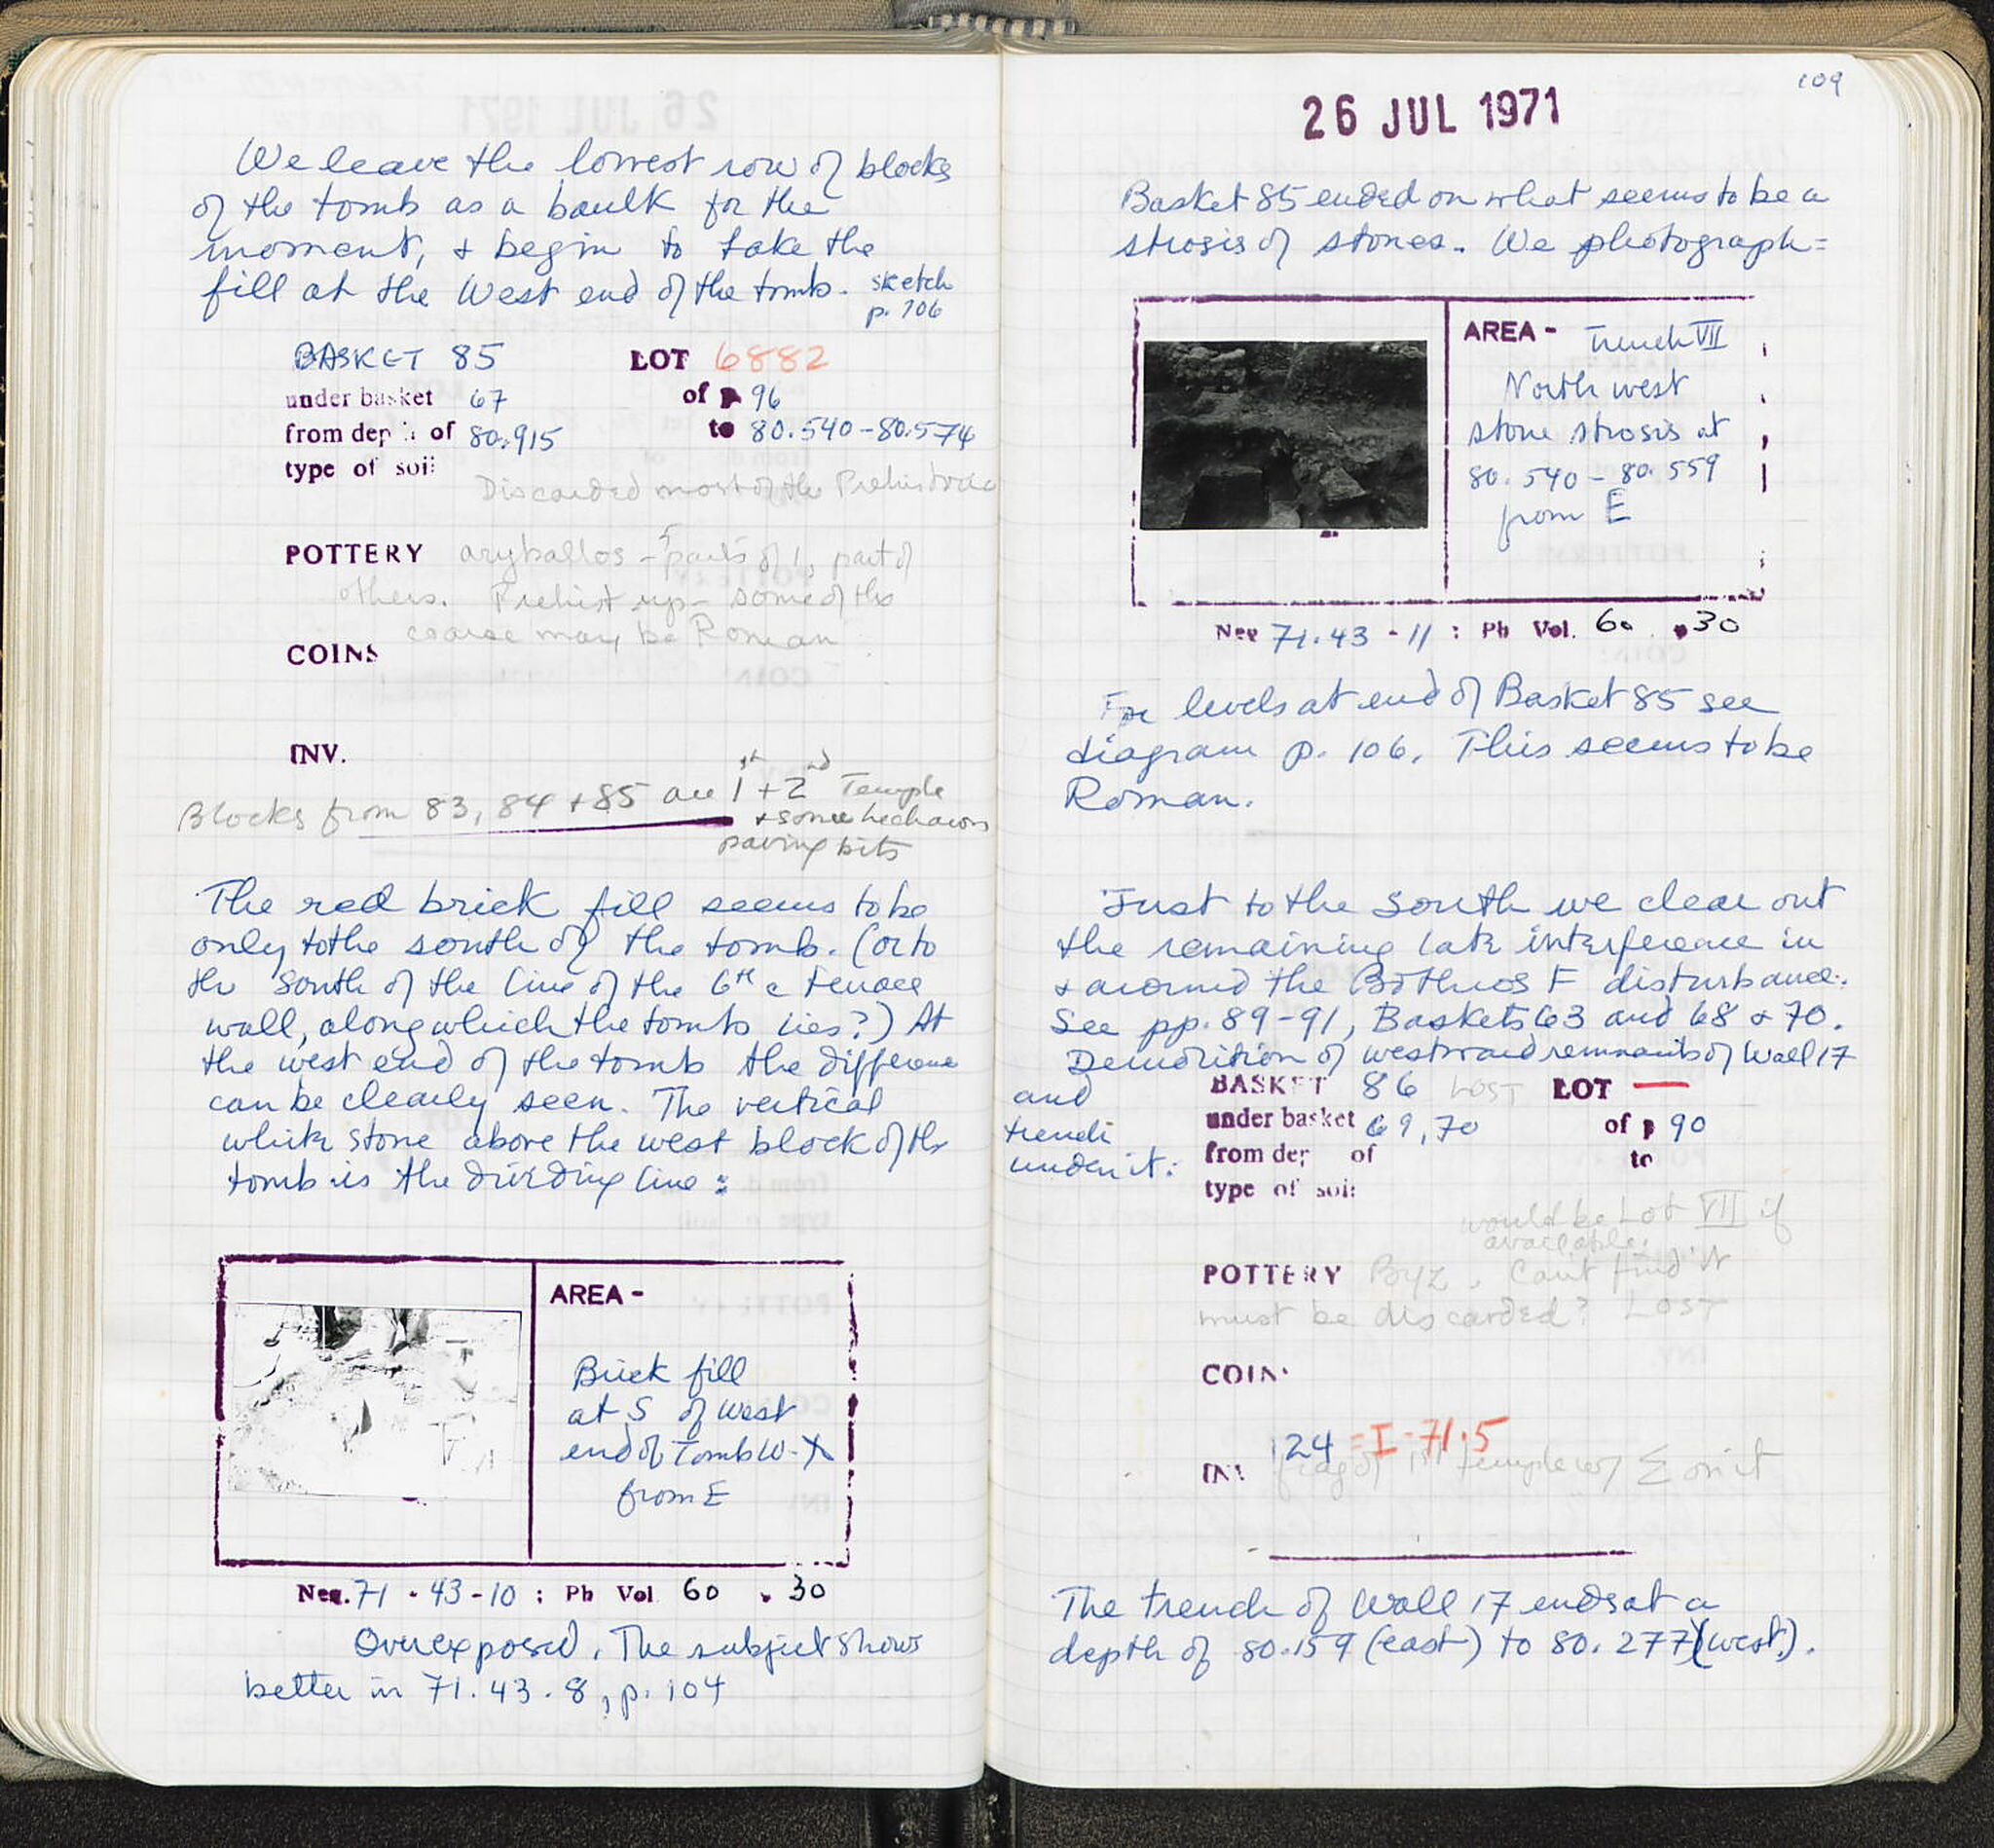 We leave the lowest row of blocks
of the tomb as a baulk for the
moment, + begin to take the
fill at the West end of the tomb. sketch
p. 106
BASKET 85 LOT 6882
under basket 67 of p 96
from depth of 80.915 to 80.540-80.574
type of soil
Discarded most of the Prehistoric
POTTERY aryballos - 5 parts of 1, part of
others. Prehist up - some of the
coarse may be Roman
COINS
INV.
Blocks from 83, 84 + 85 are 1st + 2nd Temple
+ some
paving bits
The red brick fill seems to be
only to the south of the tomb. (or to
the south of the line of the 6th c terrace
wall, along which the tomb lies?) At
the west end of the tomb the difference
can be clearly seen. The vertical
white stone above the west block of the
tomb is the dividing line:
AREA -
Brick fill
at S of west
end of Tomb W-X
from E
Neg. 71 - 43 - 10 : Ph Vol 60 . 30
Overexposed. The subject shows
better in 71.43.8, p. 104
109
26 JUL 1971
Basket 85 ended on what seems to be a
strosis of stones. We photograph =
AREA - Trench VII
North west
stone strosis at
80.540 - 80.559
from E
Neg 71.43 - 11 : Ph Vol. 60 . 30
For levels at end of Basket 85 see
diagram p. 106. This seems to be
Roman.
Just to the south we clear out
the remaining late interference in
+ around the Bothros F disturbance.
See pp. 89-91, Baskets 63 and 68 + 70.
Demolition of westward remnants of Wall 17
and
trench
under it:
BASKET 86 LOST LOT —
under basket 69, 70 of p 90
from dep of to
type of soil
would be Lot VII if
available.
POTTERY Byz. Can't find it
must be discarded? LOST
COIN
124 = I-71.5
INV frag of 1st temple w/ Σ on it
The trench of Wall 17 ends at a
depth of 80.159 (east) to 80.277 (west).